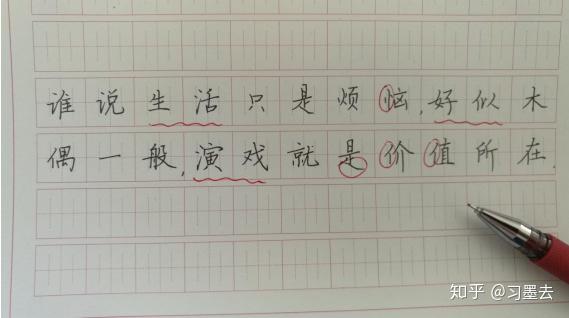 谁说生活只是烦恼,好似木
偶一般,演戏就是价值所在.
知乎 @习墨去